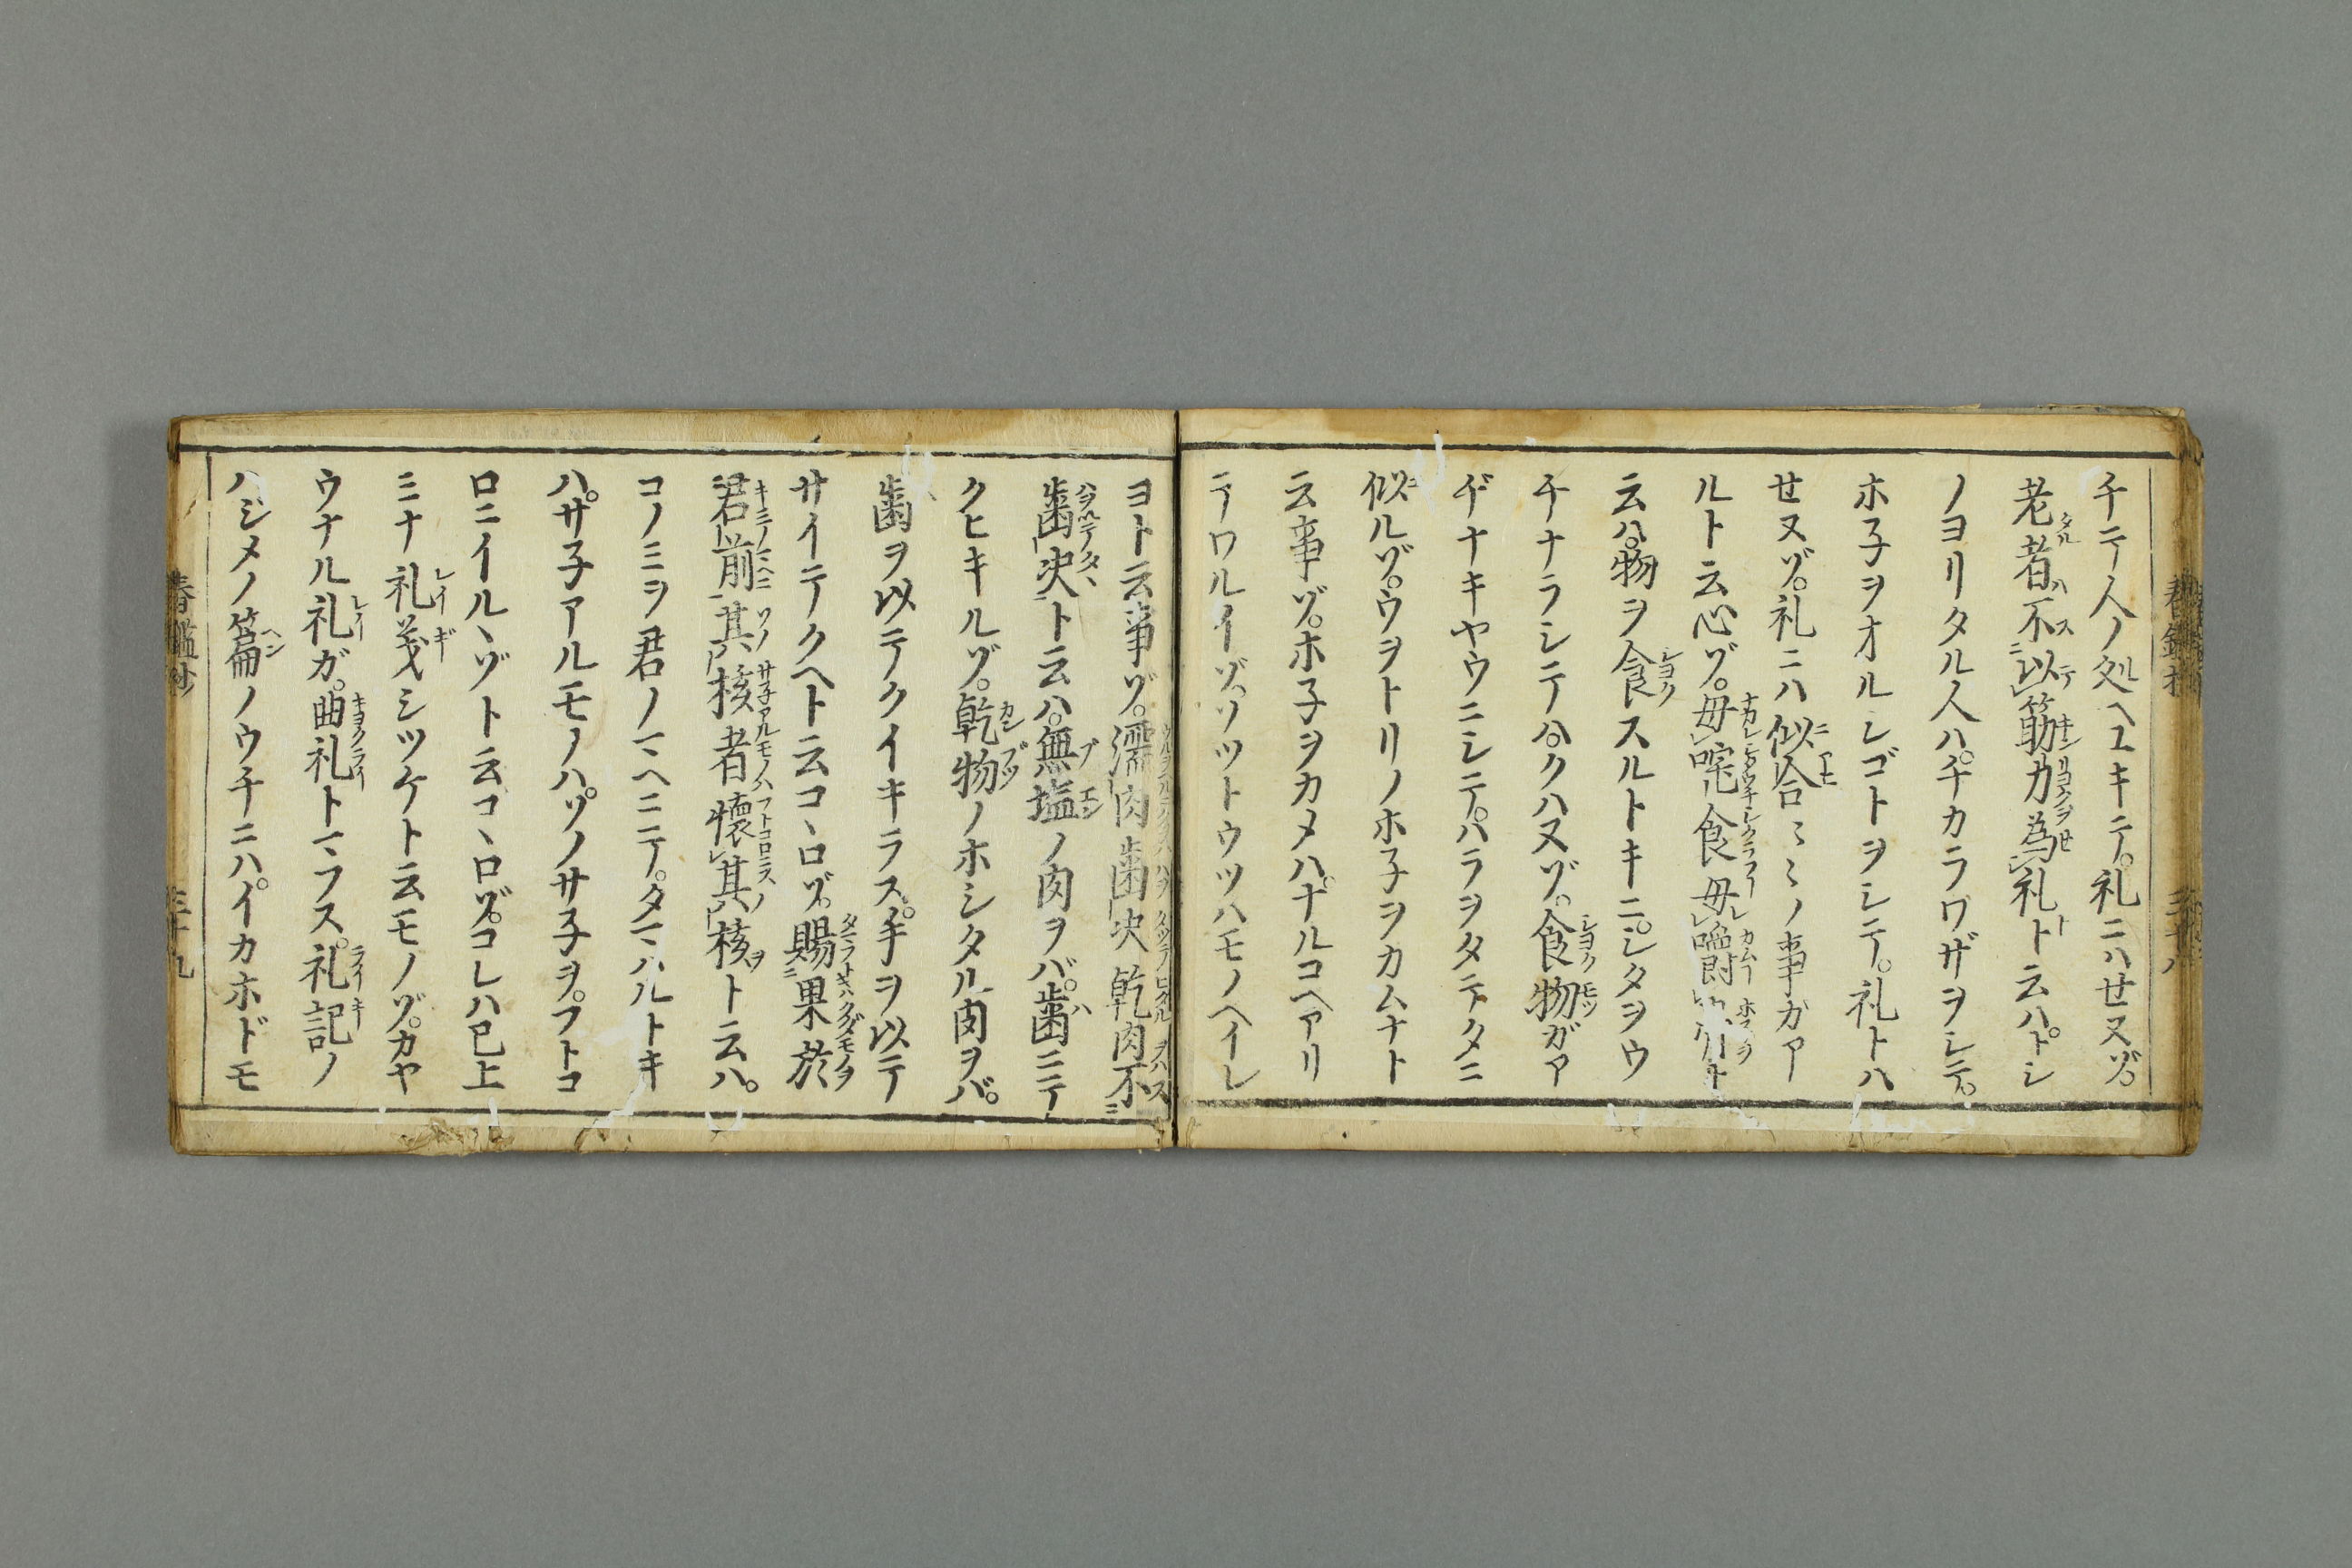 チニテ人ノ処ヘユキニテ。礼ニハせヌゾ。
老者不以筋力為礼ト云ハ。トシ
ノヨリタル人ハ。チカラワザヲシニテ。
ホ子ヲオルシゴトヲシニテ。礼トハ
せヌゾ。礼ニハ似合〻〻ノ事ガア
ルト云心ゾ。毋咤食毋嚙骨ト
云ハ。物ヲ食スルトキニ。シタヲウ
チナラシニテハ。クハヌゾ。食物ガア
ヂナキヤウニシニテ。ハラヲタテタニ
似ルゾ。ウヲトリノホ子ヲカムナト
云事ゾ。ホ子ヲカメハ。ナルコヘアリ
ニテワルイゾ。ソツトウツハモノヘイレ
ヨト云事ゾ。濡肉歯决乾肉不
歯决ト云ハ。無塩ノ肉ヲバ。歯ニテ
クヒキルゾ。乾物ノホシタル肉ヲバ。
歯ヲ以テクイキラス。手ヲ以テ
サイテクヘト云コヽロゾ。賜果於
君前其核者懐其核ト云ハ。
コノミヲ君ノマヘニテ。タマハルトキ
ハ。サ子アルモノハ。ソノサ子ヲ。フトコ
ロニイルヽゾト云コヽロゾ。コレハ已上
ミナ礼義シツケト云モノゾ。カヤ
ウナル礼ガ。曲礼トマフス。礼記ノ
ハジメノ篇ノウチニハ。イカホドモ
三十八
三十九